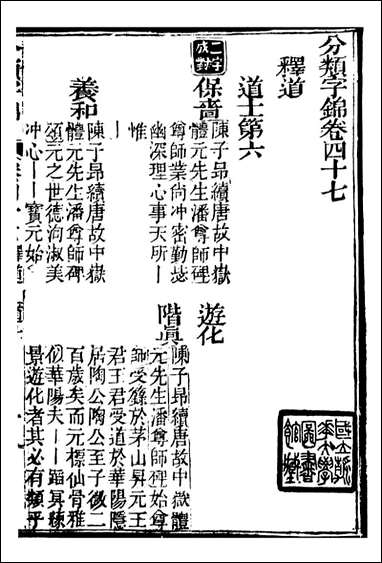 分類字錦卷四十七
釋道
道士第六
二字成對
保嗇
陳子昂續唐故中嶽
體元先生潘尊師碑
尊師業尚冲密勤毖
幽深理心事天所丨
丨惟
遊化
養和
陳子昂續唐故中嶽
體元先生潘尊師碑
頌元之世德洵淑美
冲心丨丨寶元始
階眞
陳子昂續唐故中嶽體
元先生潘尊師碑始尊
師受籙於茅山昇元王
君王君受道於華陽隱
居陶公陶公至子微二
百歲矣而元標仙骨雅
似華陽夫丨丨蹈昇
景遊化者其必有類乎
國立清
華大學
圖書
館藏